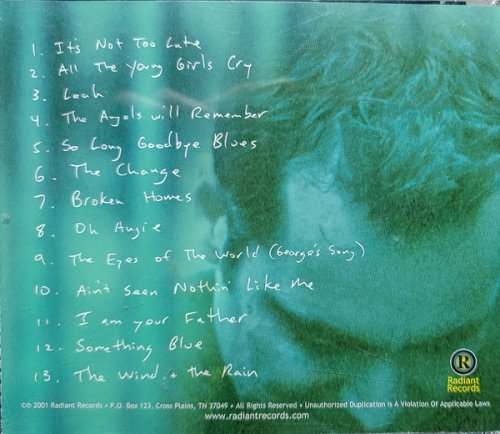 1. It's Not Too Late
2. All The Young Girls Cry
3. Leah
4. The Angels will Remember
5. So Long Goodbye Blues
6. The Change
7. Broken Homes
8. Oh Angie
9. The Eyes of The World (George's Song)
10. Ain't Seen Nothin' Like Me
11. I am your Father
12. Something Blue
13. The Wind + the Rain
R
Radiant
Records
©℗ 2001 Radiant Records • P.O. Box 123, Cross Plains, TN 37049 • All Rights Reserved • Unauthorized Duplication Is A Violation Of Applicable Laws
www.radiantrecords.com